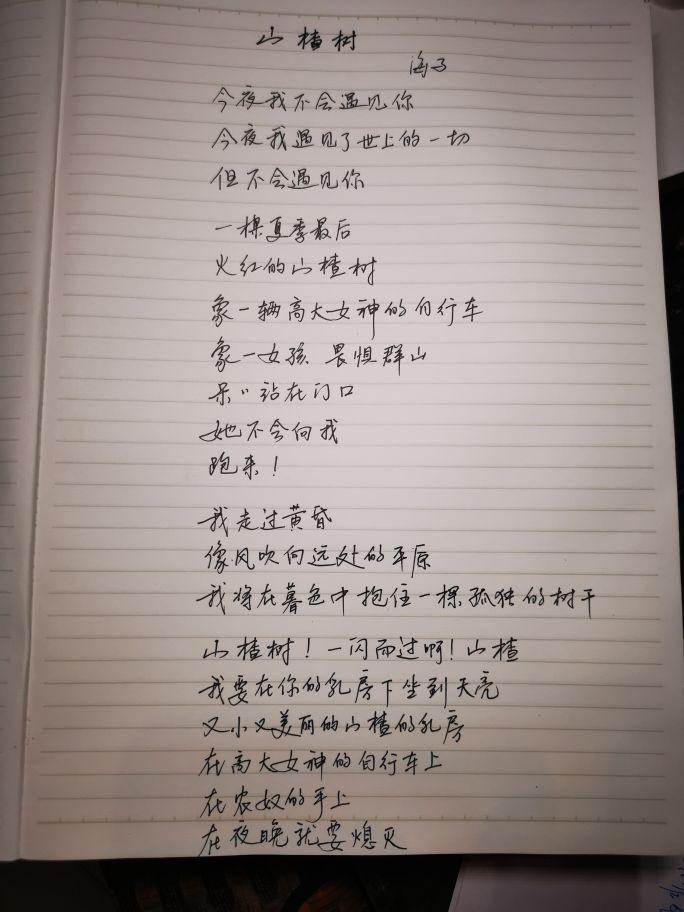 山楂树
海子
今夜我不会遇见你
今夜我遇见了世上的一切
但不会遇见你
一棵夏季最后
火红的山楂树
象一辆高大女神的自行车
象一女孩 畏惧群山
呆〃站在门口
她不会向我
跑来！
我走过黄昏
像风吹向远处的平原
我将在暮色中抱住一棵孤独的树干
山楂树！一闪而过啊！山楂
我要在你的乳房下坐到天亮
又小又美丽的山楂的乳房
在高大女神的自行车上
在农奴的手上
在夜晚就要熄灭